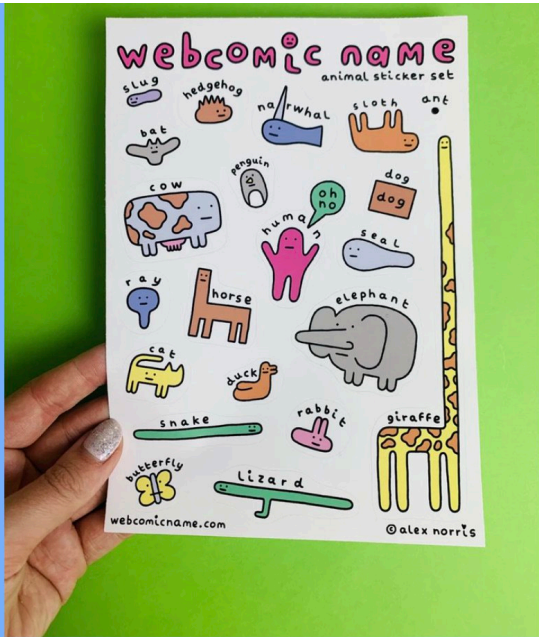 webcomic name
animal sticker set
slug
hedgehog
narwhal
sloth
ant
bat
penguin
cow
oh
no
dog
dog
human
seal
ray
horse
elephant
cat
duck
rabbit
snake
giraffe
butterfly
lizard
webcomicname.com
©alex norris